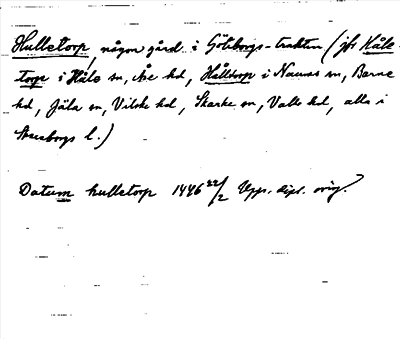 Hulletorp, någon gård i Göteborgs-trakten (jfr Håle-
torp i Håle sn, Åse hd, Hålltorp i Naums sn, Barne
hd, Jäla sn, Vilske hd, Skarke sn, Valle hd, alla i
Skaraborgs l.)
Datum hulletorp 1446 22/2 Upps. dipl. orig.